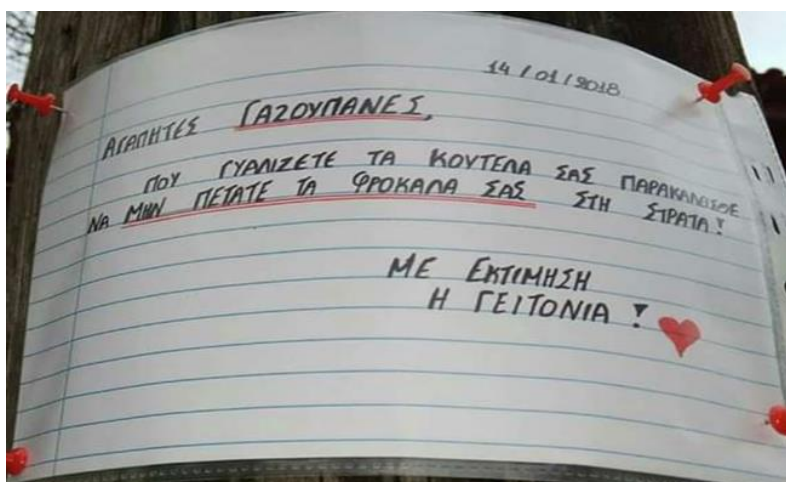 14/01/2018
ΑΓΑΠΗΤΕΣ ΓΑΖΟΥΠΑΝΕΣ,
ΠΟΥ ΓΥΑΛΙΖΕΤΕ ΤΑ ΚΟΥΤΕΛΑ ΣΑΣ ΠΑΡΑΚΑΛΕΙΣΘΕ
ΝΑ ΜΗΝ ΠΕΤΑΤΕ ΤΑ ΦΡΟΚΑΛΑ ΣΑΣ ΣΤΗ ΣΤΡΑΤΑ!
ΜΕ ΕΚΤΙΜΗΣΗ
Η ΓΕΙΤΟΝΙΑ !